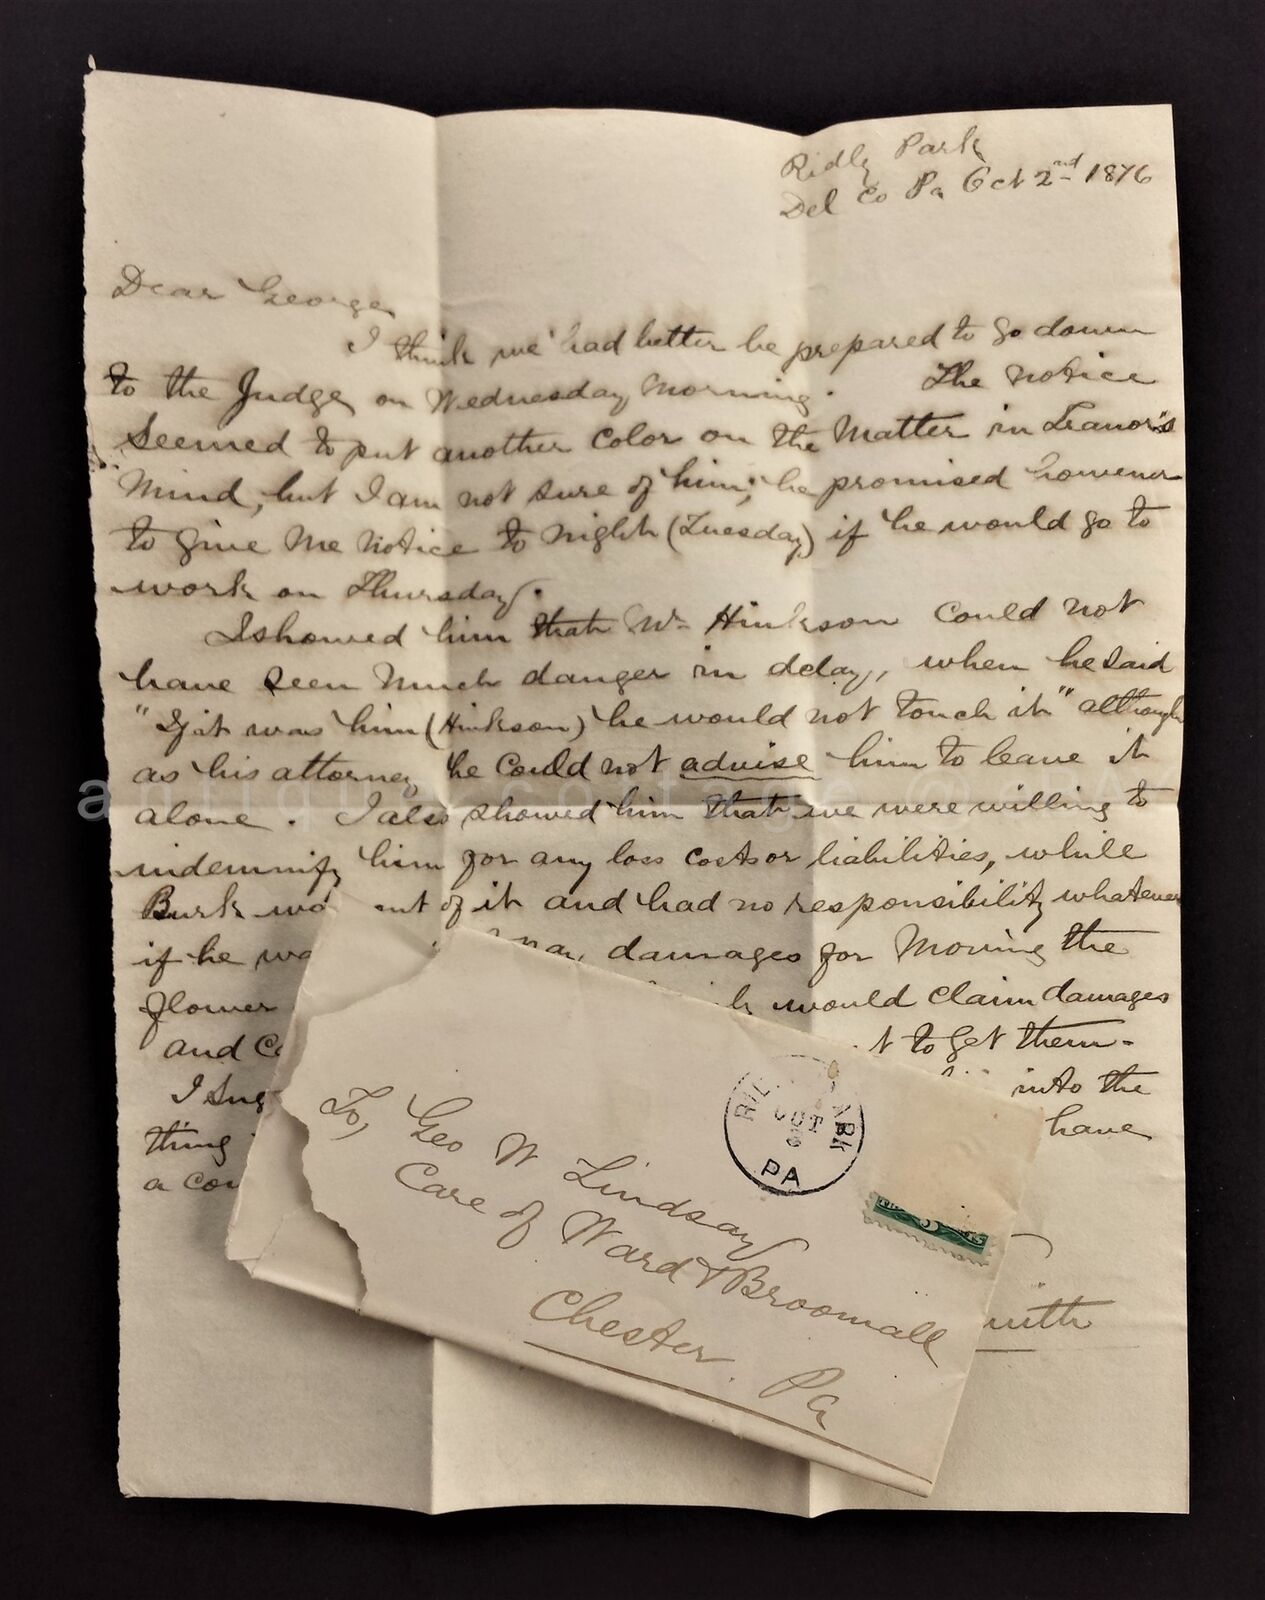 Ridly Park
Del Co Pa Oct 2nd 1876
Dear George
I think we had better be prepared to go down
to the Judge on Wednesday Morning. The notice
Seemed to put another Color on the Matter in Leanor's
Mind, but I am not sure of him; he promised however
to give Me Notice to night (Tuesday) if he would go to
work on Thursday.
I showed him that Mr Hinkson Could not
have seen Much danger in delay, when he said
"If it was him (Hinkson) he would not touch it" although
as his attorney he Could not advise him to leave it
alone. I also showed him that we were willing to
indemnify him for any loss costs or liabilities, while
Burk was out of it and had no responsibility whatever
if he damages for Moving the
flower would claim damages
and to get them-
I into the
thing have
a
To, Geo W Lindsay
Care of Ward & Broomall
Chester Pa
OCT
PA